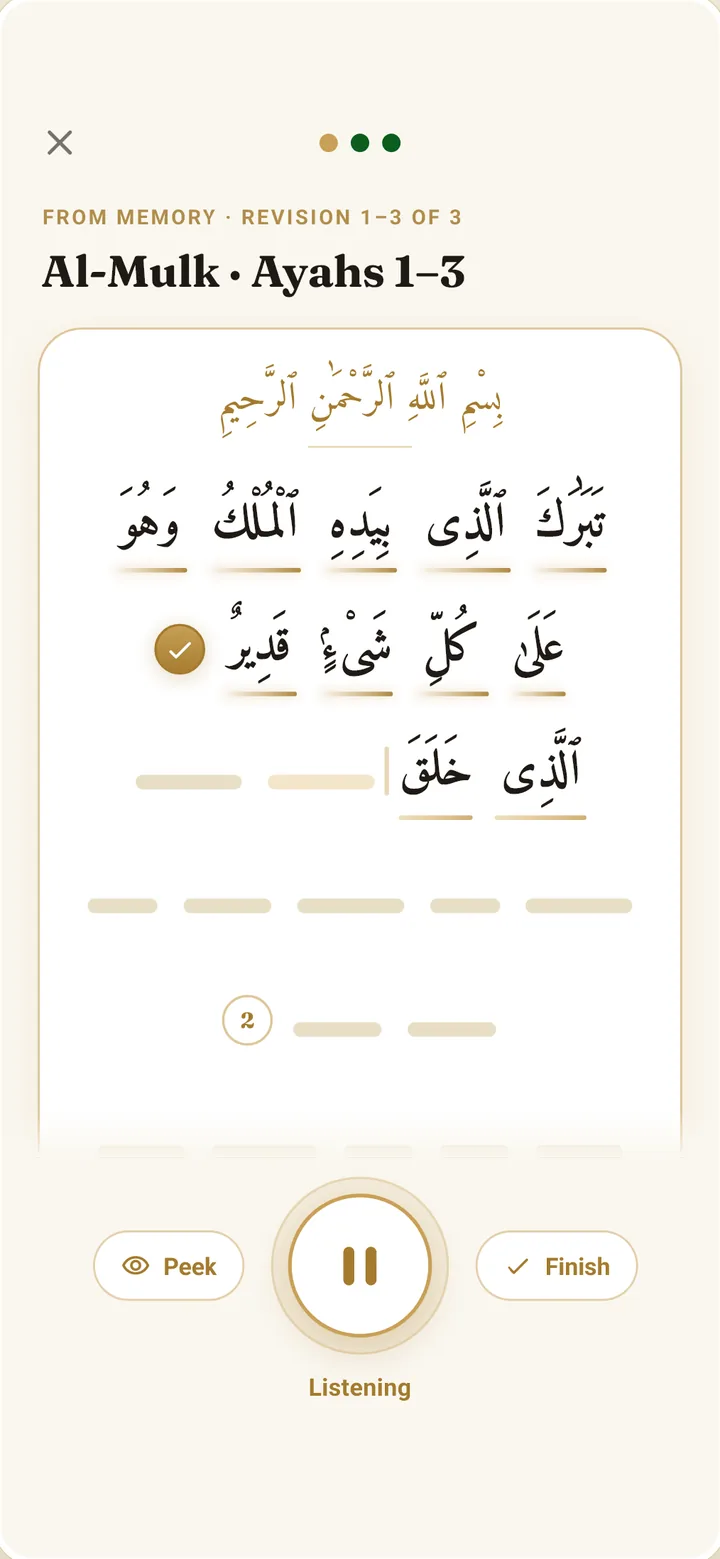 FROM MEMORY · REVISION 1–3 OF 3
Al-Mulk · Ayahs 1–3
بِسْمِ ٱللَّهِ ٱلرَّحْمَٰنِ ٱلرَّحِيمِ
تَبَٰرَكَ ٱلَّذِى بِيَدِهِ ٱلْمُلْكُ وَهُوَ
عَلَىٰ كُلِّ شَىْءٍۢ قَدِيرٌ
ٱلَّذِى خَلَقَ
2
Peek
Finish
Listening